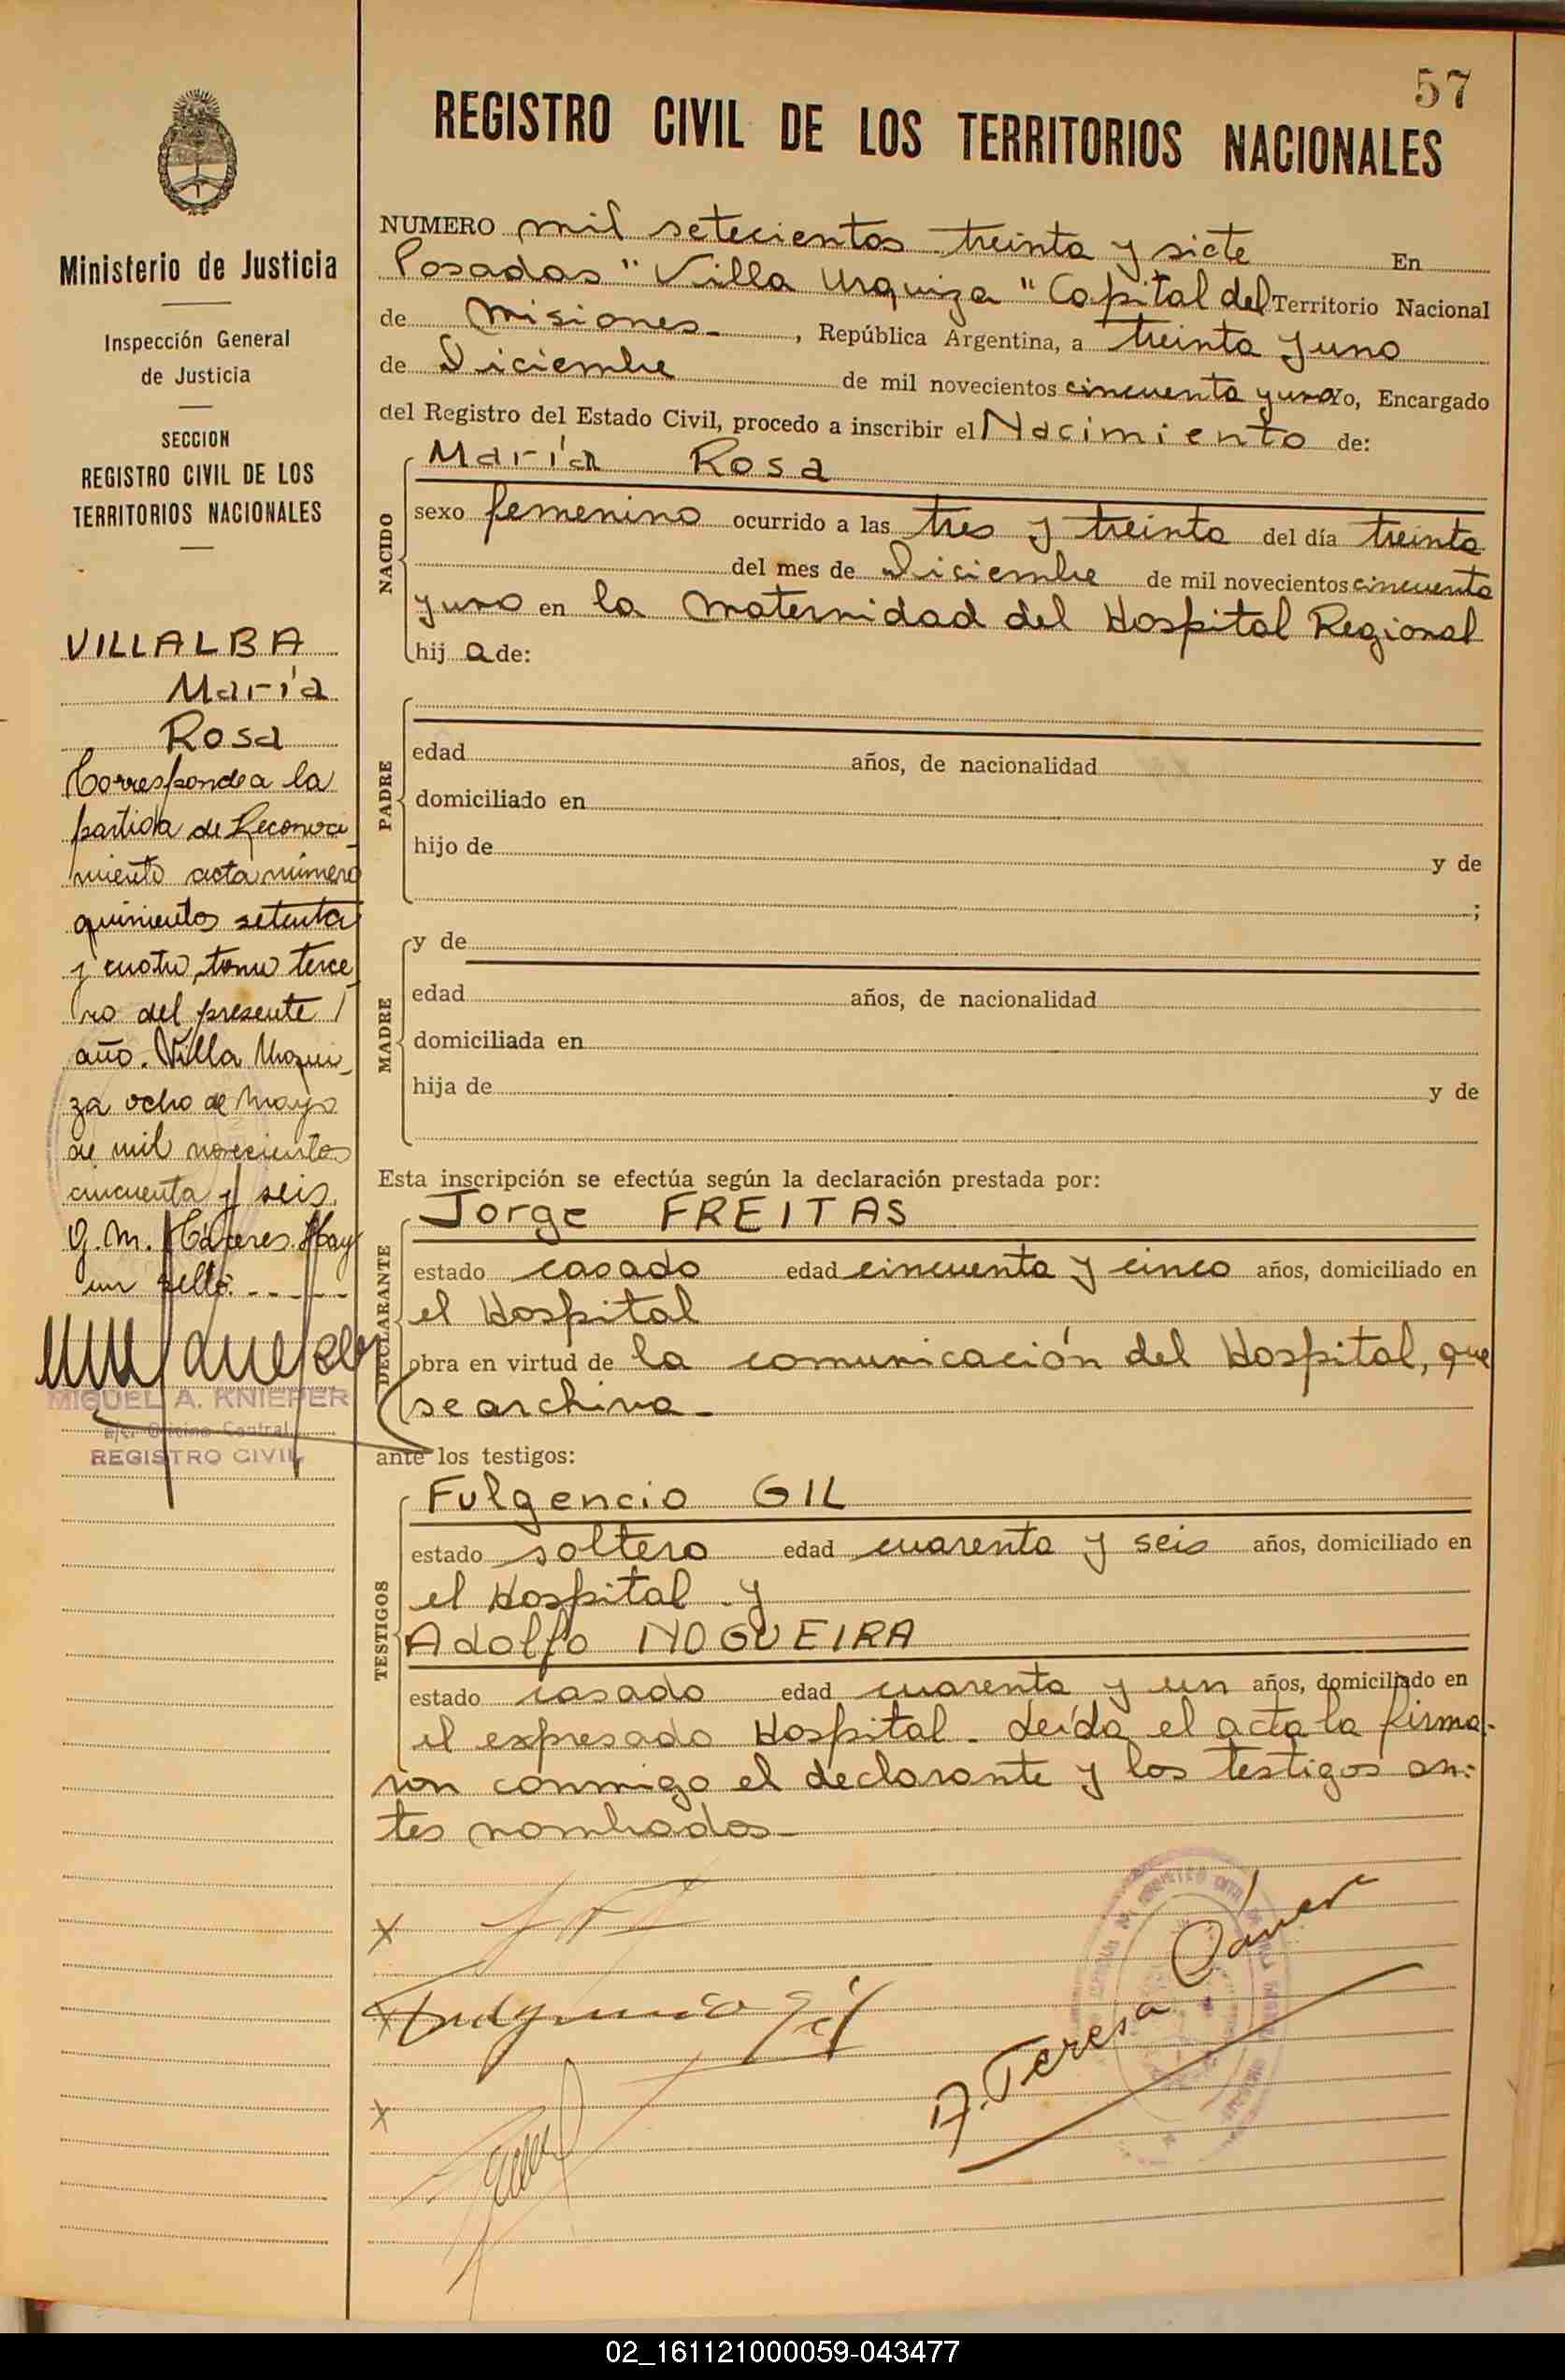 57
REGISTRO CIVIL DE LOS TERRITORIOS NACIONALES
Ministerio de Justicia
Inspección General
de Justicia
SECCION
REGISTRO CIVIL DE LOS
TERRITORIOS NACIONALES
VILLALBA
María
Rosa
Corresponde a la
partida de Reconoci_
miento acta número
quinientos setenta
y cuatro, tomo terce_
ro del presente
año. Villa Urqui_
za ocho de Mayo
de mil novecientos
cincuenta y seis.
G. M. Cáceres. Hay
un sello. - - - -
MIGUEL A. KNIEPER
e/c. Oficina Central
REGISTRO CIVIL
NUMERO mil setecientos treinta y siete En
Posadas "Villa Urquiza" Capital del Territorio Nacional
de Misiones_, República Argentina, a treinta y uno
de Diciembre de mil novecientos cincuenta y uno Yo, Encargado
del Registro del Estado Civil, procedo a inscribir el Nacimiento de:
NACIDO
María Rosa
sexo femenino ocurrido a las tres y treinta del día treinta
del mes de Diciembre de mil novecientos cincuenta
y uno en la maternidad del Hospital Regional
hij a de:
PADRE
edad años, de nacionalidad
domiciliado en
hijo de y de
;
MADRE
y de
edad años, de nacionalidad
domiciliada en
hija de y de
Esta inscripción se efectúa según la declaración prestada por:
DECLARANTE
Jorge FREITAS
estado casado edad cincuenta y cinco años, domiciliado en
el Hospital
obra en virtud de la comunicación del Hospital, que
se archiva_
ante los testigos:
TESTIGOS
Fulgencio GIL
estado soltero edad cuarenta y seis años, domiciliado en
el Hospital y
Adolfo NOGUEIRA
estado casado edad cuarenta y un años, domiciliado en
el expresado Hospital_ Leída el acta la firma-
ron conmigo el declarante y los testigos an-
tes nombrados_
x
x Fulgencio Gil
x
A. Teresa
02_161121000059-043477